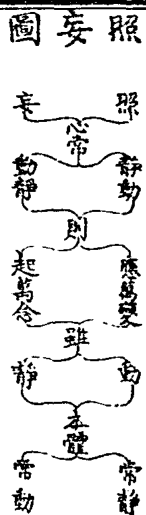 照妄圖
照 妄
心常
靜動 動靜
則
應萬變 起萬念
雖
動 靜
本體
常靜 常動